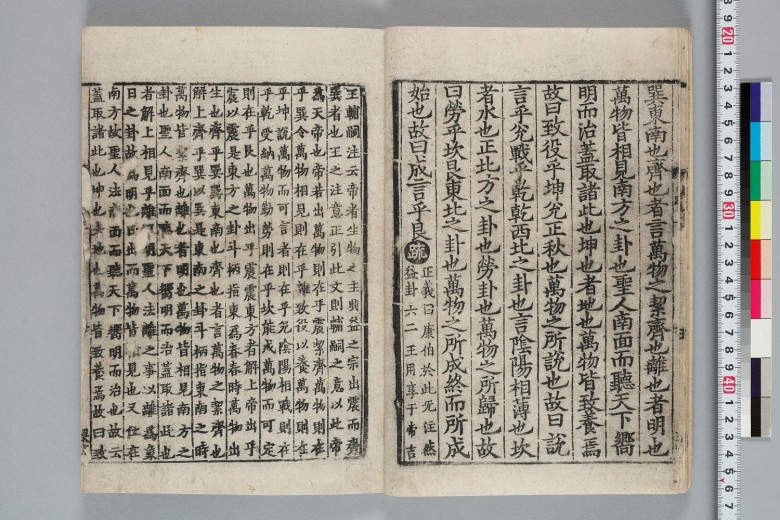 巽東南也齊也者言萬物之絜齊也離也者明也
萬物皆相見南方之卦也聖人南面而聽天下嚮
明而治蓋取諸此也坤也者地也萬物皆致養焉
故曰致役乎坤兊正秋也萬物之所說也故曰說
言乎兊戰乎乾乾西北之卦也言陰陽相薄也坎
者水也正北方之卦也勞卦也萬物之所歸也故
曰勞乎坎艮東北之卦也萬物之所成終而所成
始也故曰成言乎艮 疏
正義曰康伯於此无注然
益卦六二王用享于帝吉
王輔嗣注云帝者生物之主興益之宗出震而齊
巽者也王之注意正引此文則輔嗣之意以此帝
爲天帝也帝若出萬物則在乎震絜齊萬物則在
乎巽令萬物相見則在乎離致役以養萬物則在
乎坤說萬物而可言者則在乎兊陰陽相戰則在
乎乾受納萬物勤勞則在乎坎能成萬物而可定
則在乎艮也萬物出乎震震東方者解上帝出乎
震以震是東方之卦斗柄指東爲春春時萬物出
生也齊乎巽巽東南也齊也者言萬物之絜齊也
解上齊乎巽以巽是東南之卦斗柄指東南之時
萬物皆絜齊也離也者明也萬物皆相見南方之
卦也聖人南面而聽天下嚮明而治蓋取諸此也
者解上相見乎離 明聖人法離之事以離爲象
日之卦故爲明也日出而萬物皆相見也又位在
南方故聖人法 南面而聽天下嚮明而治也故云
蓋取諸此也坤也者地也萬物皆致養焉故曰致
20
1
2
3
4
5
6
7
8
9
30
1
2
3
4
5
6
7
8
9
40
1
2
3
4
5
6
7